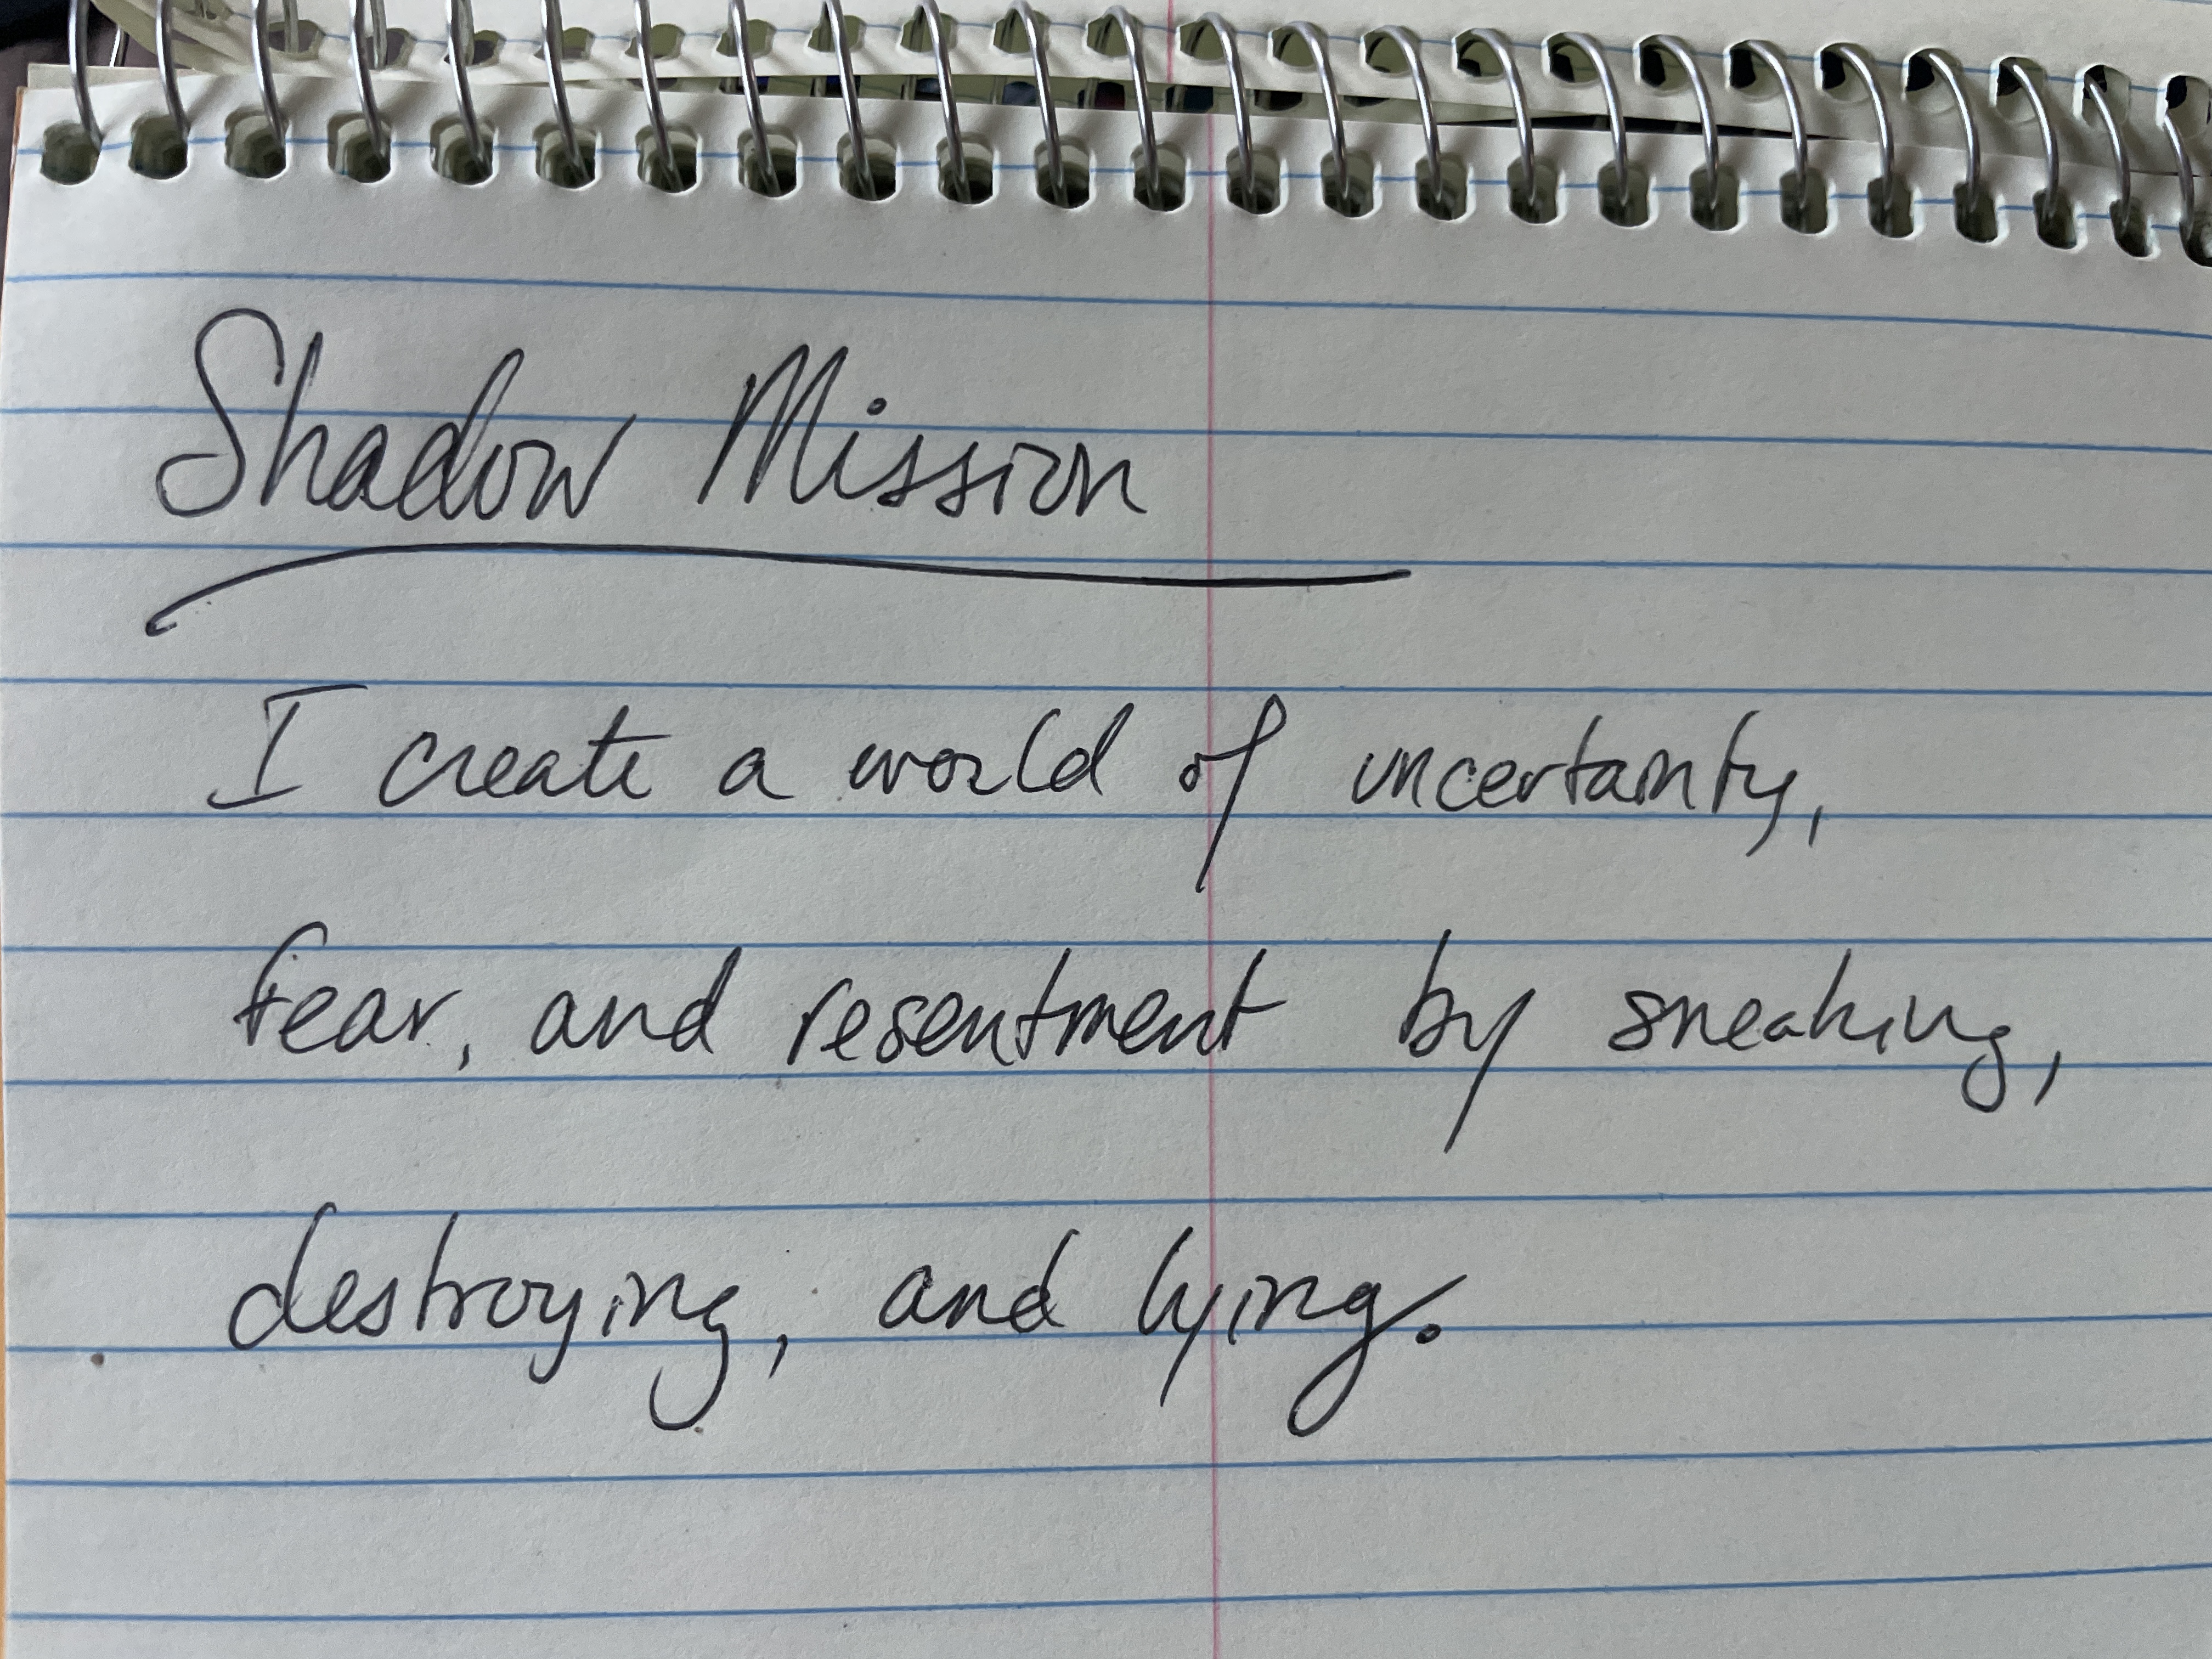 Shadow Mission
I create a world of uncertainty,
fear, and resentment by sneaking,
destroying, and lying.